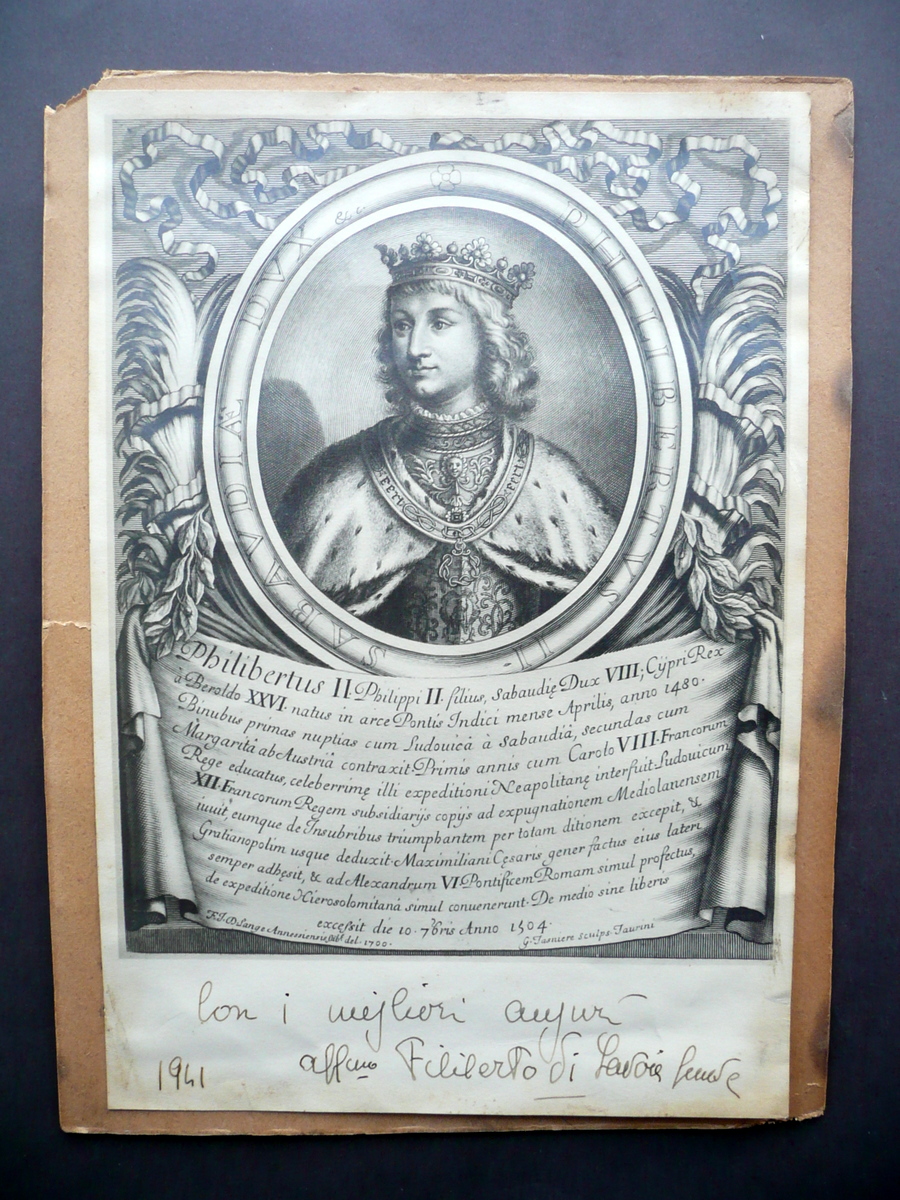 PHILIBERTUS II· SABAUDIÆ DUX &c.
Philibertus II· Philippi II· filius, Sabaudię Dux VIII; Cÿpri Rex
à Beroldo XXVI· natus in arce Pontis Indici mense Aprilis, anno 1480·
Binubus primas nuptias cum Ludovicâ à Sabaudiâ, secundas cum
Margaritâ ab Austriâ contraxit· Primis annis cum Carolo VIII· Francorum
Rege educatus, celeberrimę illi expeditioni Neapolitanę interfuit· Ludouicum
XII· Francorum Regem subsidiarÿs copÿs ad expugnationem Mediolanensem
iuuit, eumque de Insubribus triumphantem per totam ditionem excepit, &
Gratianopolim usque deduxit· Maximiliani Cęsaris gener factus eius lateri
semper adhęsit, & ad Alexandrum VI· Pontificem Romam simul profectus,
de expeditione Hierosolomitanâ simul conuenerunt· De medio sine liberis
excessit die 10· 7bris Anno 1504·
F.I.D. Lange Annessiensis del· 1700·
G· Tasniere Sculps· Taurini
Con i migliori auguri
1941 affmo Filiberto di Savoia Genova